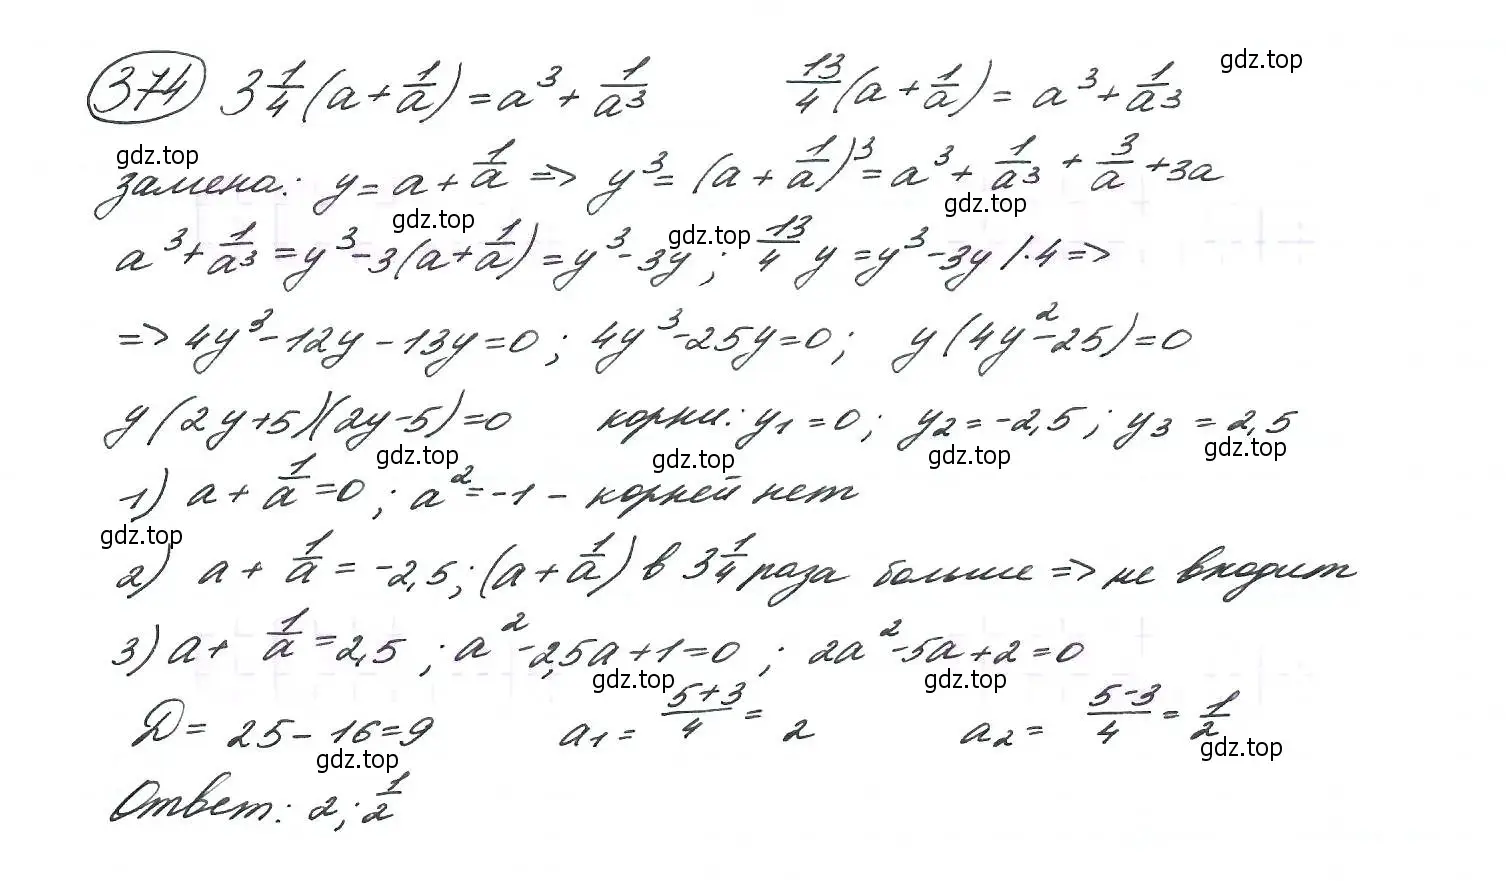 374 3 1/4 (a + 1/a) = a³ + 1/a³ 13/4 (a + 1/a) = a³ + 1/a³
gdz.top
gdz.top
замена: y = a + 1/a => y³ = (a + 1/a)³ = a³ + 1/a³ + 3/a + 3a
gdz.top gdz.top gdz.top
a³ + 1/a³ = y³ - 3(a + 1/a) = y³ - 3y ; 13/4 y = y³ - 3y /·4 =>
=> 4y³ - 12y - 13y = 0 ; 4y³ - 25y = 0 ; y(4y² - 25) = 0
y(2y+5)(2y-5) = 0 корни: y₁ = 0 ; y₂ = -2,5 ; y₃ = 2,5
gdz.top gdz.top gdz.top gdz.top
1) a + 1/a = 0 ; a² = -1 - корней нет
gdz.top
2) a + 1/a = -2,5 ; (a + 1/a) в 3 1/4 раза больше => не входит
3) a + 1/a = 2,5 ; a² - 2,5a + 1 = 0 ; 2a² - 5a + 2 = 0
gdz.top gdz.top
D = 25 - 16 = 9 a₁ = 5+3/4 = 2 a₂ = 5-3/4 = 1/2
gdz.top gdz.top
Ответ: 2 ; 1/2